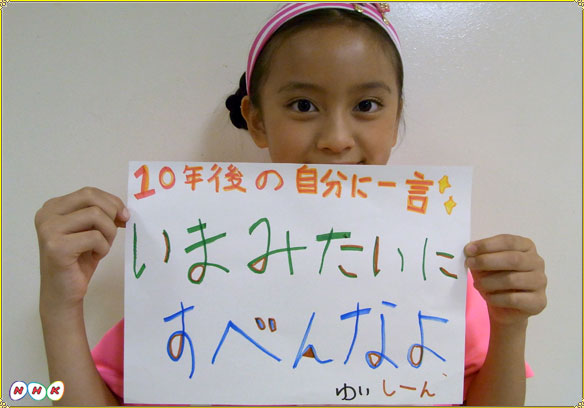 10年後の自分に一言
いまみたいに
すべんなよ
ゆいしーん
NHK